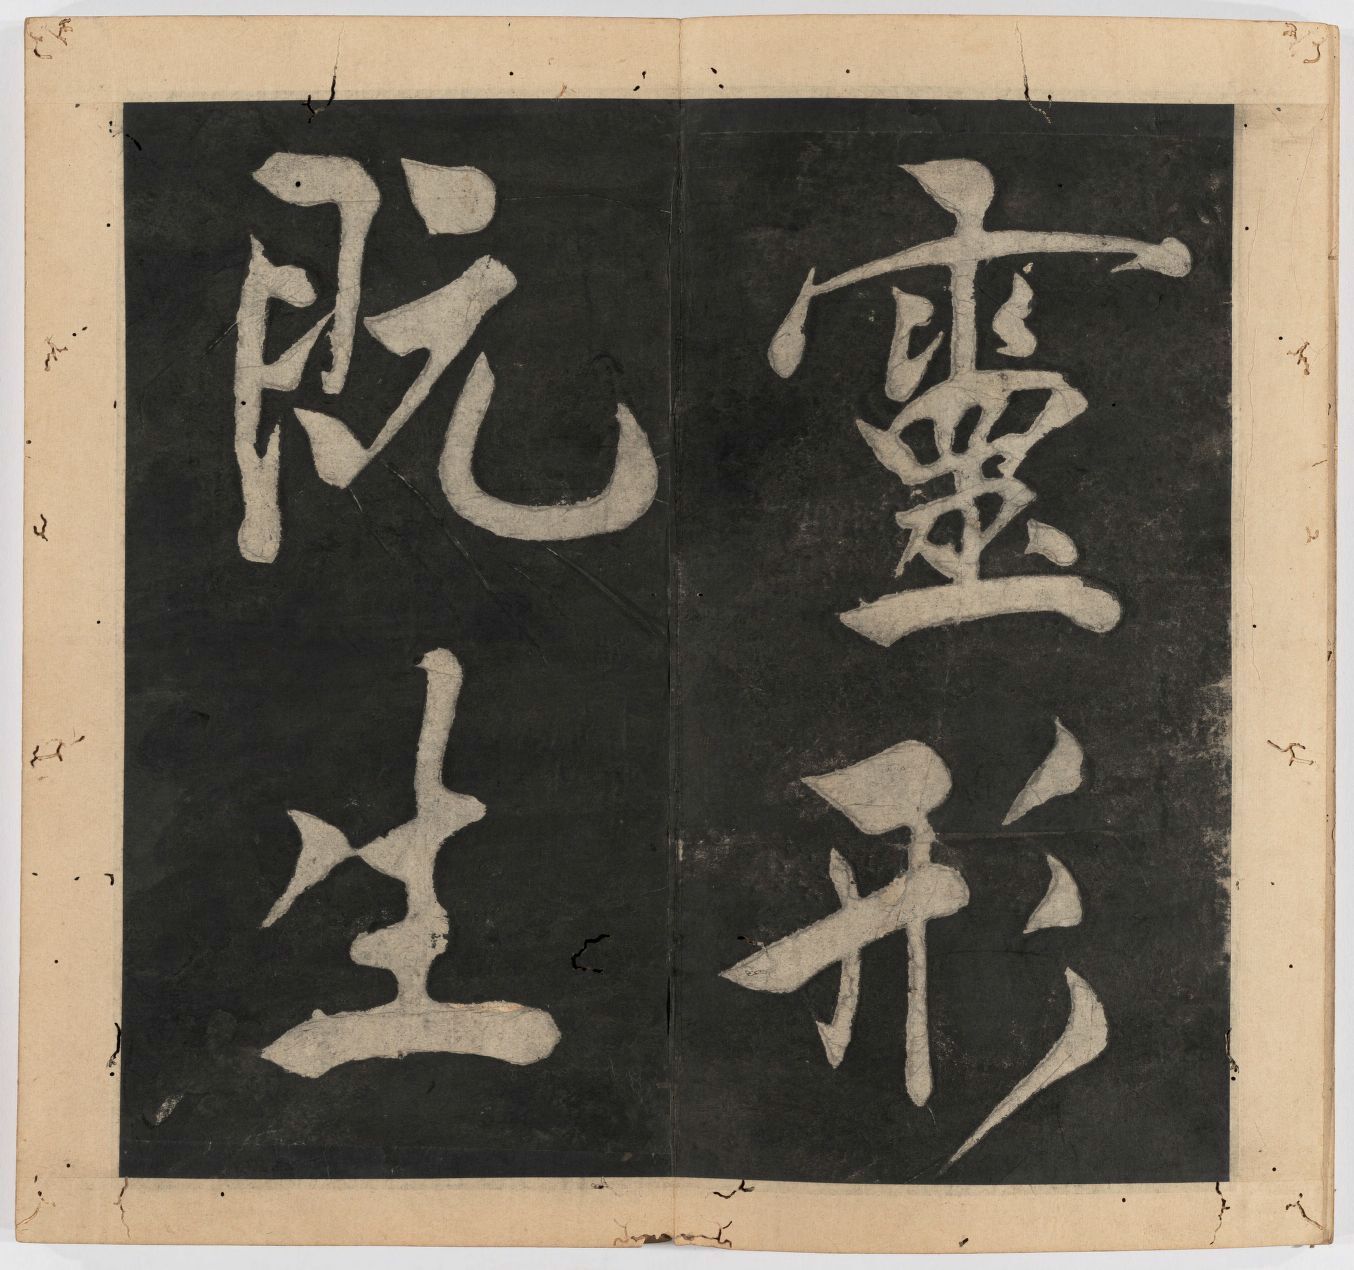 靈形
既生